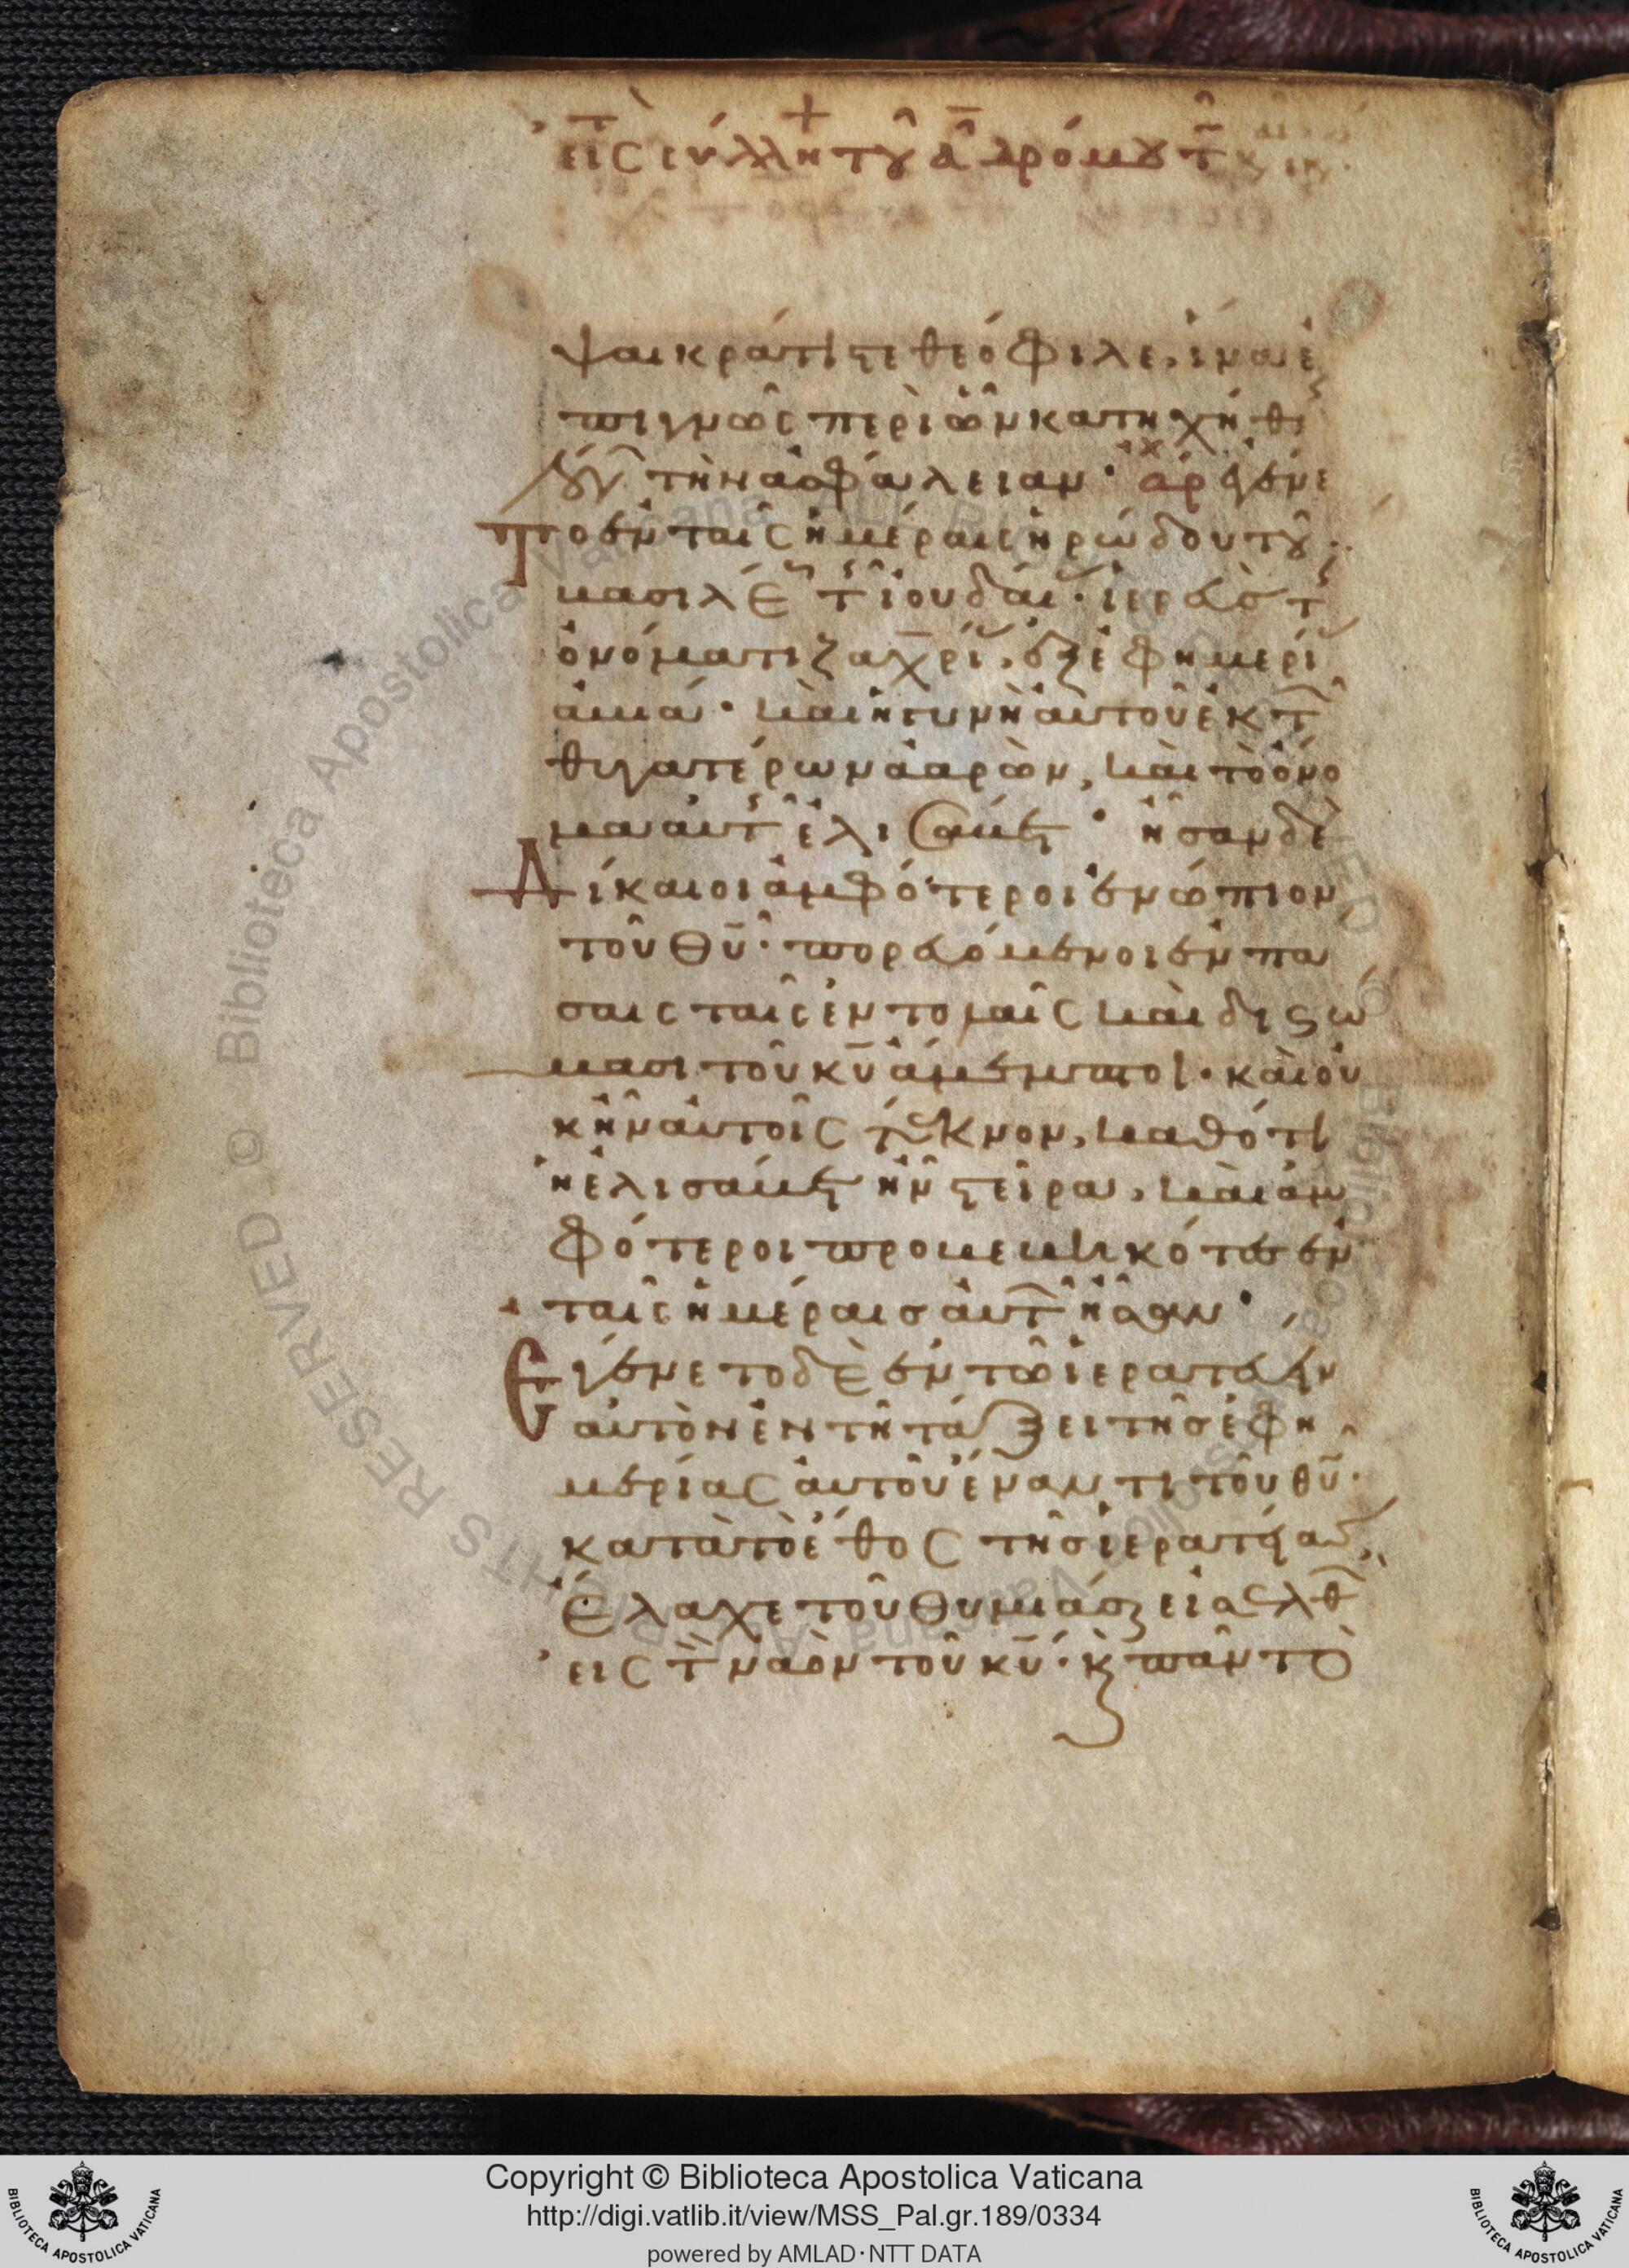 εἰς τ συλλη τοῦ ἁ προδρόμου τ
ψαι κράτιστε θεόφιλε, ἵνα ἐ
πιγνῶς περὶ ὧν κατηχήθης
λόγων τὴν ἀσφάλειαν· ἀρχ ἐγένε
το ἐν ταῖς ἡμέραις ἡρώδου τοῦ
βασιλέως τ ἰουδαί· ἱερεύς τ
ὀνόματι ζαχρί, ἐξ ἐφημερί
ἀβιά· καὶ ἡ γυνὴ αὐτοῦ ἐκ τ
θυγατέρων ἀαρὼν, καὶ τὸ ὄνο
μα αὐτ ἐλισάβετ· ἦσαν δὲ
Δίκαιοι ἀμφότεροι ἐνώπιον
τοῦ θυ· πορευόμενοι ἐν πά
σαις ταῖς ἐντολαῖς καὶ δικαιώ
μασι τοῦ κυ ἄμεμπτοι· καὶ οὐ
κ ἦν αὐτοῖς τέκνον, καθότι
ἡ ἐλισάβετ ἦν στεῖρα, καὶ ἀμ
φότεροι προβεβηκότες ἐν
ταῖς ἡμέραις αὐτ ἦσαν·
Ἐγένετο δὲ ἐν τῶ ἱερατεύειν
αὐτὸν ἐν τῆ τάξει τῆς ἐφη
μερίας αὐτοῦ ἔναντι τοῦ θυ·
κατὰ τὸ ἔθος τῆς ἱερατείας,
ἔλαχε τοῦ θυμιάσαι εἰσελθ
εἰς τ ναὸν τοῦ κυ· κ πᾶν τὸ
Copyright © Biblioteca Apostolica Vaticana
http://digi.vatlib.it/view/MSS_Pal.gr.189/0334
powered by AMLAD·NTT DATA
BIBLIOTECA APOSTOLICA VATICANA
BIBLIOTECA APOSTOLICA VATICANA